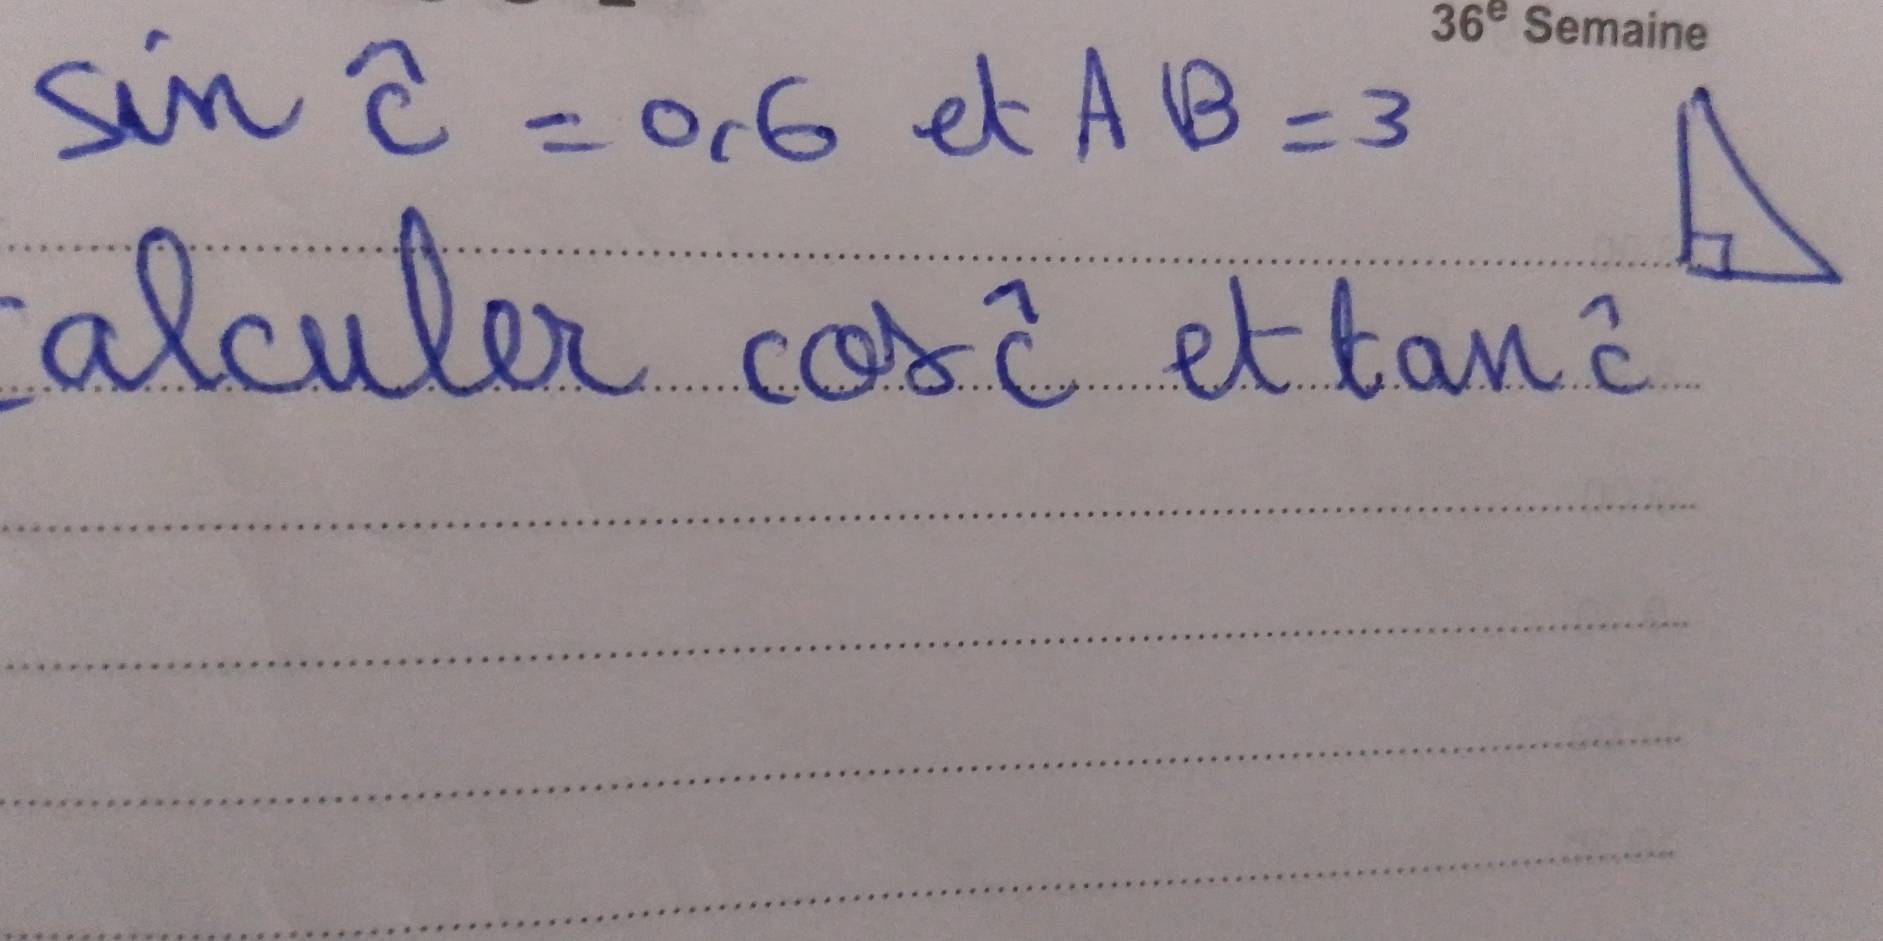 36e Semaine
sin ĉ = 0,6 et AB = 3
calculer cos ĉ et tan ĉ